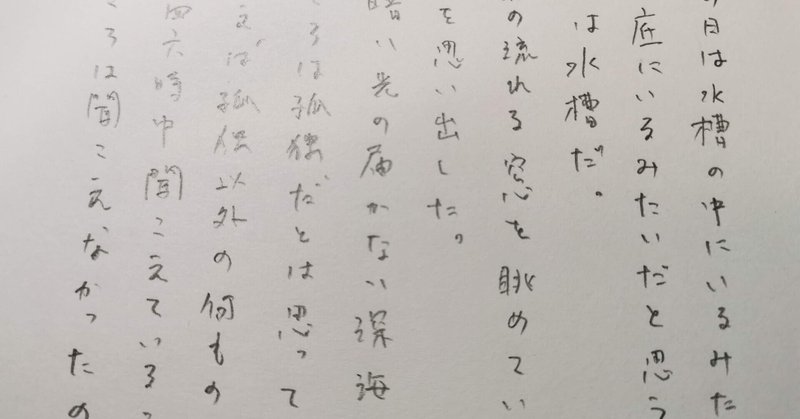 日は水槽の中にいるみた
底にいるみたいだと思う
は水槽だ。
の流れる窓を眺めてい
を思い出した。
暗い光の届かない深海
ろは孤独だとは思って
えば孤独以外の何もの
四六時中聞こえている
ろは聞こえなかったの